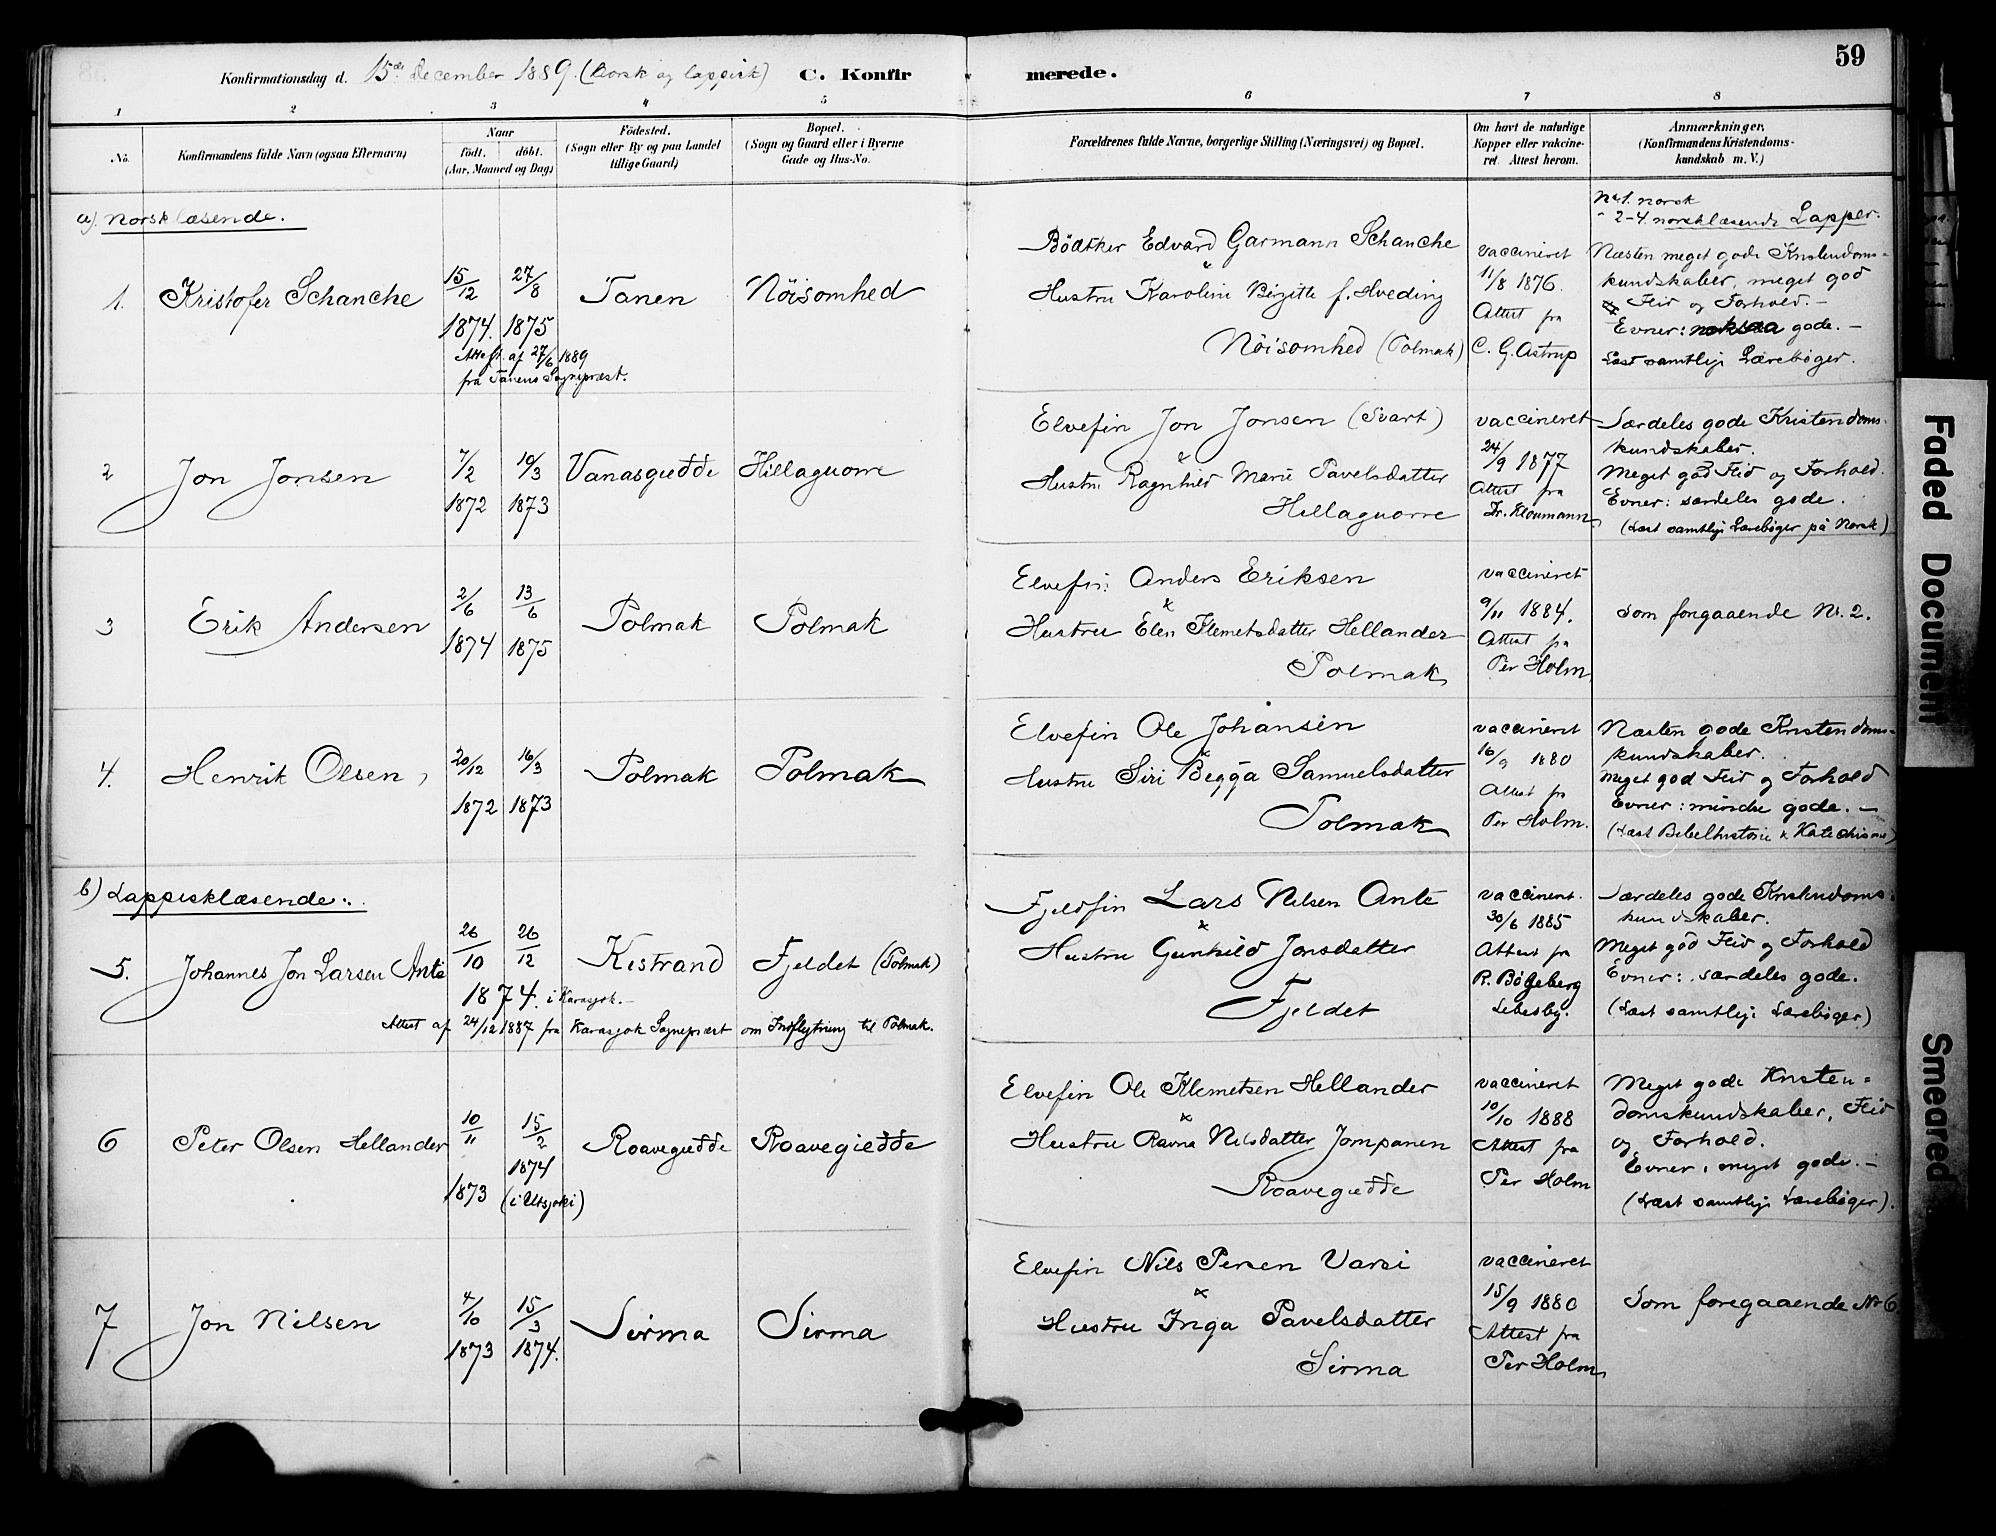 Konfirmationsdag d. 15de December 1889. (norsk og lappisk) C. Konfirmerede. 59
1 2 3 4 5 6 7 8
No. Konfirmandens fulde Navn (ogsaa Efternavn)
Naar
födt. döbt.
(Aar, Maaned og Dag)
Födested.
(Sogn eller By og paa Landet
tillige Gaard)
Bopæl.
(Sogn og Gaard eller i Byerne
Gade og Hus-No.
Forældrenes fulde Navne, borgerlige Stilling (Næringsvei) og Bopæl.
Om havt de naturlige
Kopper eller vakcine-
ret. Attest herom.
Anmærkninger.
(Konfirmandens Kristendoms-
kundskab m. V.)
a) Norsklæsende.
No 1. norsk
" 2-4. norsklæsende Lapper.
1. Kristofer Schanche
15/12 27/8
1874. 1875
Attest af 27/6 1889
fra Tanens Sognepræst.
Tanen
Nöisomhed
Bödtker Edvard Garmann Schanche
&
Hustru Karoline Birgitte f. Hveding
Nöisomhed (Polmak)
vaccineret
11/8 1876.
Attest fra
C. G. Astrup
Næsten meget gode Kristendoms-
kundskaber, meget god
Flid og Forhold. -
Evner: gode. -
Læst samtlige Lærebøger.
2 Jon Jonsen
7/2 10/3
1872 1873
Vanasgiedde
Hillaguorre
Elvefin Jon Jonsen (Svart)
&
Hustru Ragnhild Marie Pavelsdatter
Hillaguorre
vaccineret
24/9 1877
Attest fra
Dr. Kloumann
Særdeles gode Kristendoms-
kundskaber.
Meget god Flid og Forhold.
Evner: særdeles gode.
(Læst samtlige Lærebøger på Norsk)
3 Erik Andersen
2/6 13/6
1874 1875
Polmak
Polmak
Elvefin: Anders Eriksen
&
Hustru Elen Klemetsdatter Hellander
Polmak
vaccineret
9/11 1884.
Attest fra
Per Holm
Som forgaaende Nr. 2.
4. Henrik Olsen
20/12 16/3
1872 1873
Polmak
Polmak
Elvefin Ole Johansen
&
Hustru Siri Begga Samuelsdatter
Polmak
vaccineret
16/9 1880
Attest fra
Per Holm.
Næsten gode Kristendoms-
kundskaber.
Meget god Flid og Forhold
Evner: mindre gode. -
(Læst Bibelhistorie & Katechisme)
b) Lappisklæsende:
5. Johannes Jon Larsen Anti
26/10 26/12
1874. i Karasjok. -
Attest af 24/12 1887 fra Karasjok Sognepræst om Indflytning til Polmak.
Kistrand
Fjeldet (Polmak)
Fjeldfin Lars Nilsen Anti
&
Hustru Gunhild Jonsdatter
Fjeldet
vaccineret.
30/6 1885
Attest fra
R. Bögeberg
Lebesby.
Særdeles gode Kristendoms-
kundskaber.
Meget god Flid og Forhold
Evner: særdeles gode.
(Læst samtlige Lærebøger)
6 Peter Olsen Hellander
10/11 15/2
1874
1873 (i Utsjoki)
Roavegiedde
Roavegiedde
Elvefin Ole Klemetsen Hellander
&
Hustru Ravna Nilsdatter Jompanen
Roavegiedde
vaccineret
10/10 1888
Attest fra
Per Holm
Meget gode Kristen-
domskundskaber, Flid
og Forhold.
Evner: meget gode. -
(Læst samtlige Lærebøger).
7 Jon Nilsen
4/10 15/3
1873 1874.
Sirma
Sirma
Elvefin Nils Persen Varsi
&
Hustru Inga Pavelsdatter
Sirma
vaccineret
15/9 1880
Attest fra
Per Holm
Som foregaaende No 6
Faded Document
Smeared